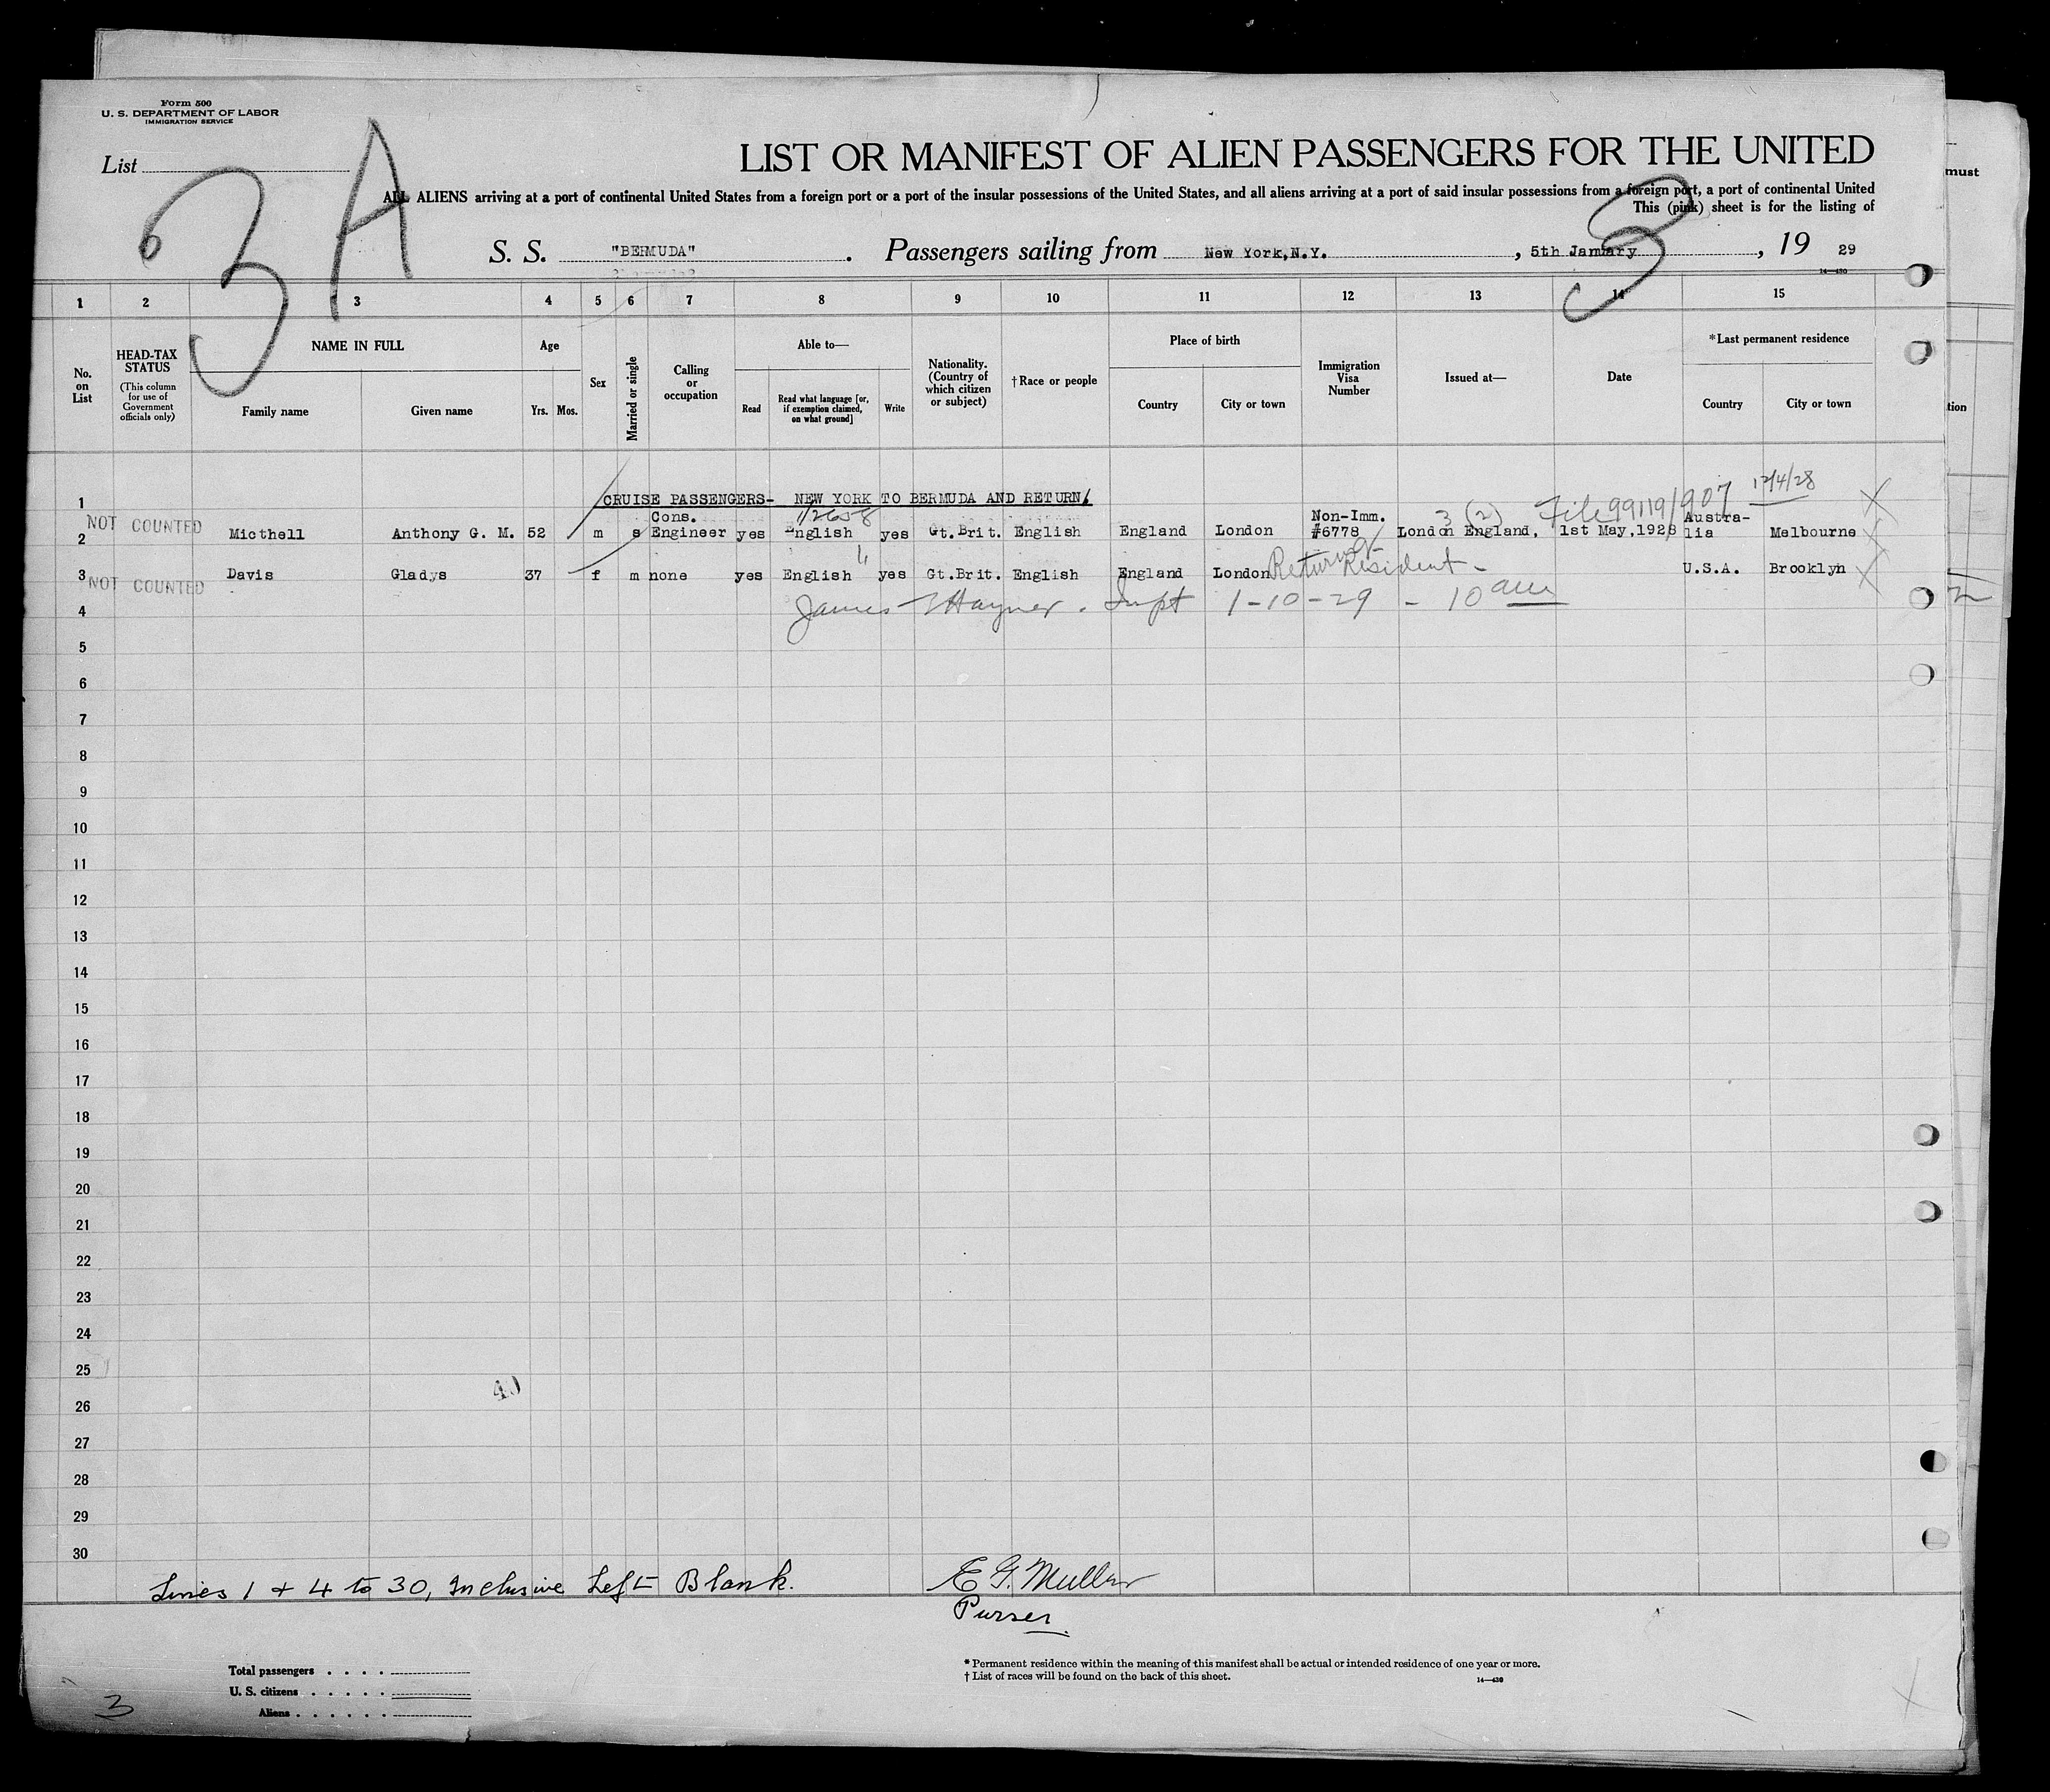 Form 500
U. S. DEPARTMENT OF LABOR
IMMIGRATION SERVICE
List
3 A
LIST OR MANIFEST OF ALIEN PASSENGERS FOR THE UNITED
ALL ALIENS arriving at a port of continental United States from a foreign port or a port of the insular possessions of the United States, and all aliens arriving at a port of said insular possessions from a foreign port, a port of continental United
This (pink) sheet is for the listing of
must
3
S. S. "BERMUDA" . Passengers sailing from New York,N.Y. , 5th January , 19 29
14—430
1 2 3 4 5 6 7 8 9 10 11 12 13 14 15
No. on List
HEAD-TAX STATUS
(This column for use of Government officials only)
NAME IN FULL
Family name Given name
Age
Yrs. Mos.
Sex
Married or single
Calling or occupation
Able to—
Read
Read what language [or, if exemption claimed, on what ground]
Write
Nationality. (Country of which citizen or subject)
†Race or people
Place of birth
Country City or town
Immigration Visa Number
Issued at—
Date
*Last permanent residence
Country City or town
tion
1 CRUISE PASSENGERS- NEW YORK TO BERMUDA AND RETURN
3 (2) File 99119/907 12/4/28
NOT COUNTED
2 Micthell Anthony G. M. 52 m s Cons. Engineer yes English yes Gt.Brit. English England London Non-Imm. #6778 London England, 1st May,1928 Austra-lia Melbourne
3 Davis Gladys 37 f m none yes English yes Gt.Brit. English England London Returng Resident - U.S.A. Brooklyn
NOT COUNTED
4 James Hayner . Inspt 1-10-29 - 10 am
5
6
7
8
9
10
11
12
13
14
15
16
17
18
19
20
21
22
23
24
25
40
26
27
28
29
30
Lines 1 + 4 to 30, Inclusive Left Blank. E G. Muller
Purser
Total passengers . . . .
U. S. citizens . . . . .
Aliens . . . . . .
* Permanent residence within the meaning of this manifest shall be actual or intended residence of one year or more.
† List of races will be found on the back of this sheet.
14—430
3